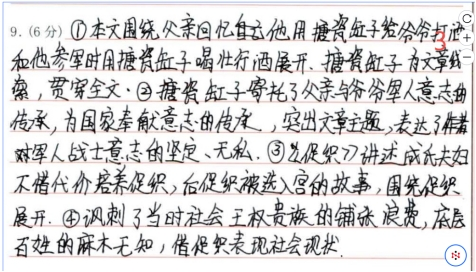 9.(6分) ①本文围绕父亲回忆自己他用搪瓷缸子给爷爷打酒
和他参军时用搪瓷缸子喝壮行酒展开.搪瓷缸子为文章线
索,贯穿全文.②搪瓷缸子寄托了父亲与爷爷军人意志的
传承,为国家奉献意志的传承,突出文章主题,表达了作者
对军人战士意志的坚定、无私.③《促织》讲述成氏夫妇
不惜代价培养促织,后促织被选入宫的故事,围绕促织
展开.④讽刺了当时社会王权贵族的铺张浪费,底层
百姓的麻木无知,借促织表现社会现状.
3